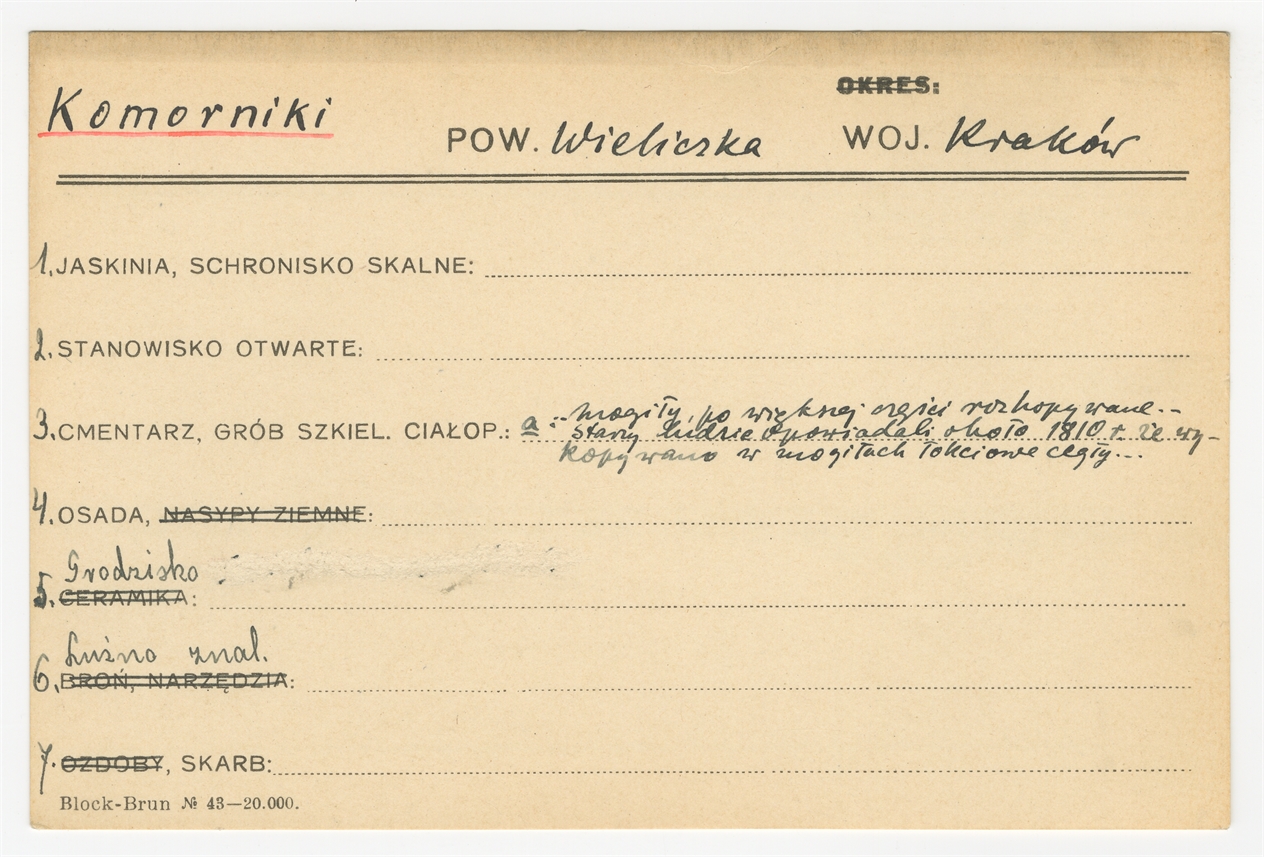 OKRES:
Komorniki POW. Wieliczka WOJ. Kraków
1. JASKINIA, SCHRONISKO SKALNE:
2. STANOWISKO OTWARTE:
..mogiły, po większej części rozkopywane..
3. CMENTARZ, GRÓB SZKIEL. CIAŁOP.: a: starzy ludzie opowiadali około 1810 r. że wy-
kopywano w mogiłach łokciowe cegły...
4. OSADA, NASYPY ZIEMNE:
Grodzisko
5. CERAMIKA:
Luźno znal.
6. BROŃ, NARZĘDZIA:
7. OZDOBY, SKARB:
Block-Brun № 43—20.000.